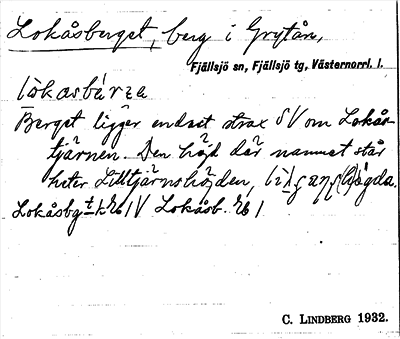 Lokåsberget, berg i Grytån,
Fjällsjö sn, Fjällsjö tg, Västernorrl. l.
lòkasbárza
Berget ligger endast strax SV om Lokås-
tjärnen. Den höjd där namnet står
heter Lilltjärnshöjden,
Lokåsbgt k. Rb I V Lokåsb. Rb I
C. LINDBERG 1932.